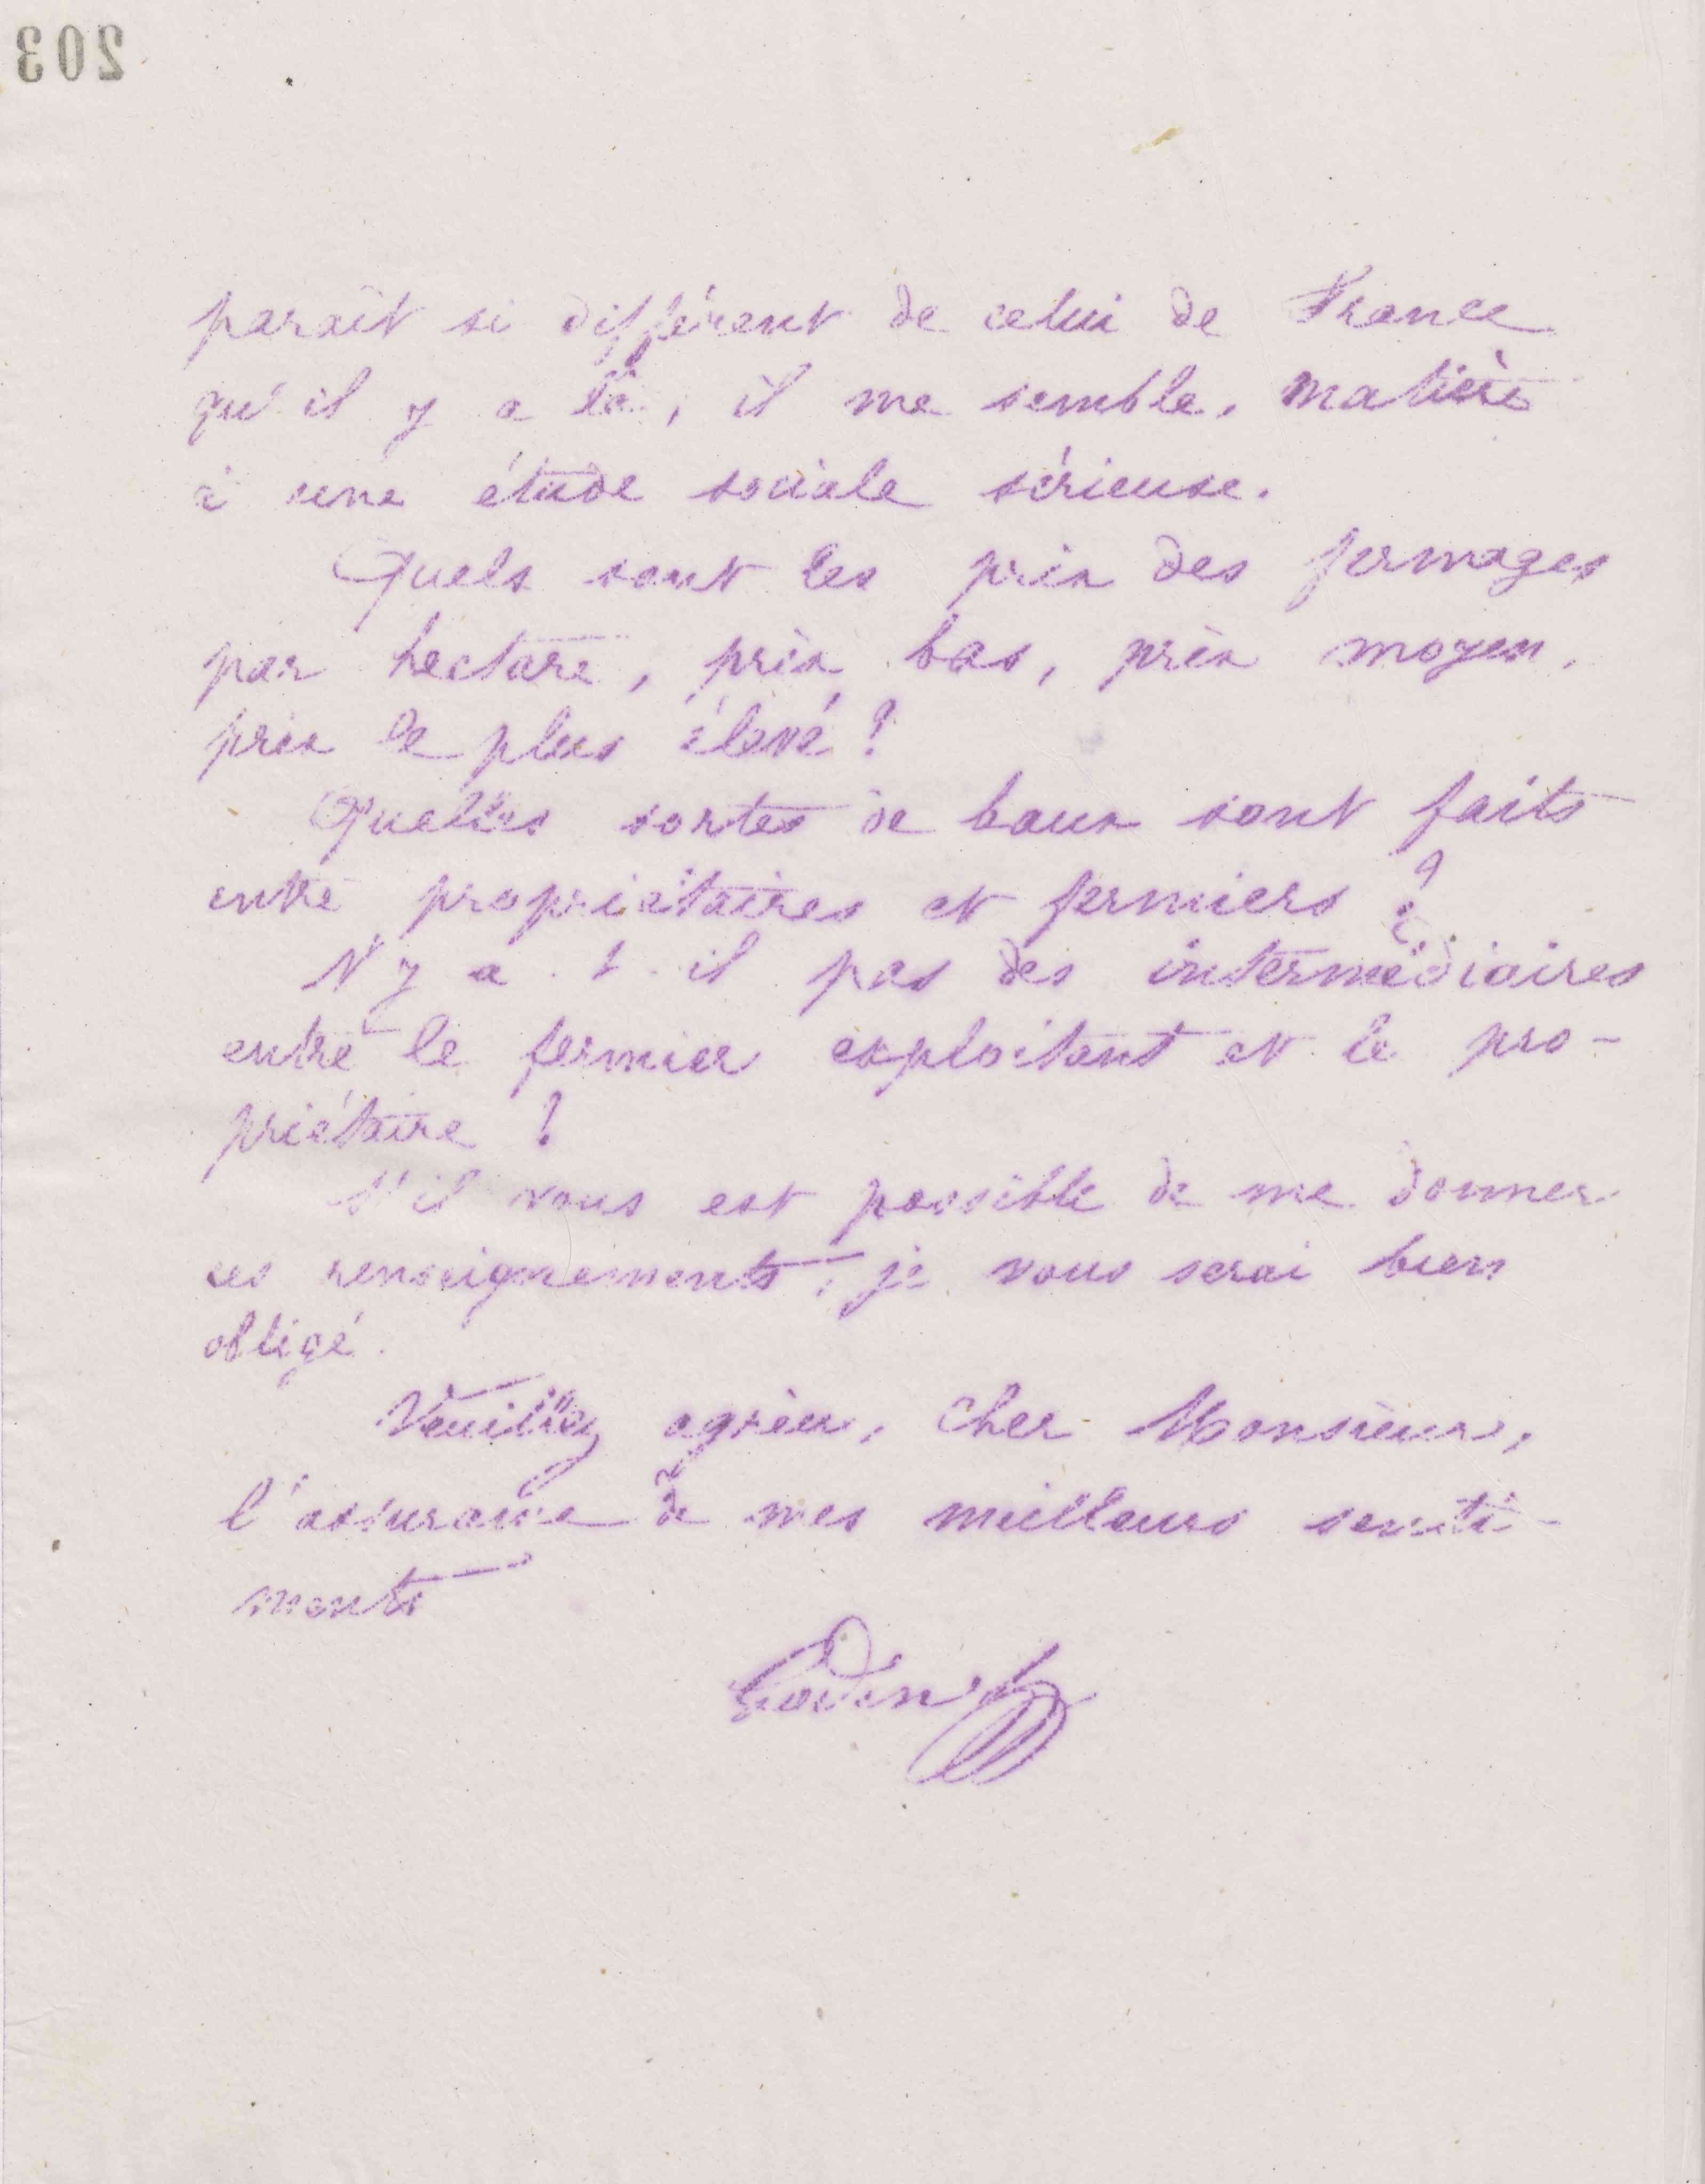 203
paraît si différent de celui de France
qu'il y a là, il me semble, matière
à une étude sociale sérieuse.
Quels sont les prix des fermages
par hectare, prix bas, prix moyen,
prix le plus élevé ?
Quelles sortes de baux sont faits
entre propriétaires et fermiers ?
N'y a-t-il pas des intermédiaires
entre le fermier exploitant et le pro-
priétaire ?
S'il vous est possible de me donner
ces renseignements, je vous serai bien
obligé.
Veuillez agréer, cher Monsieur,
l'assurance de mes meilleurs senti-
ments
Godin